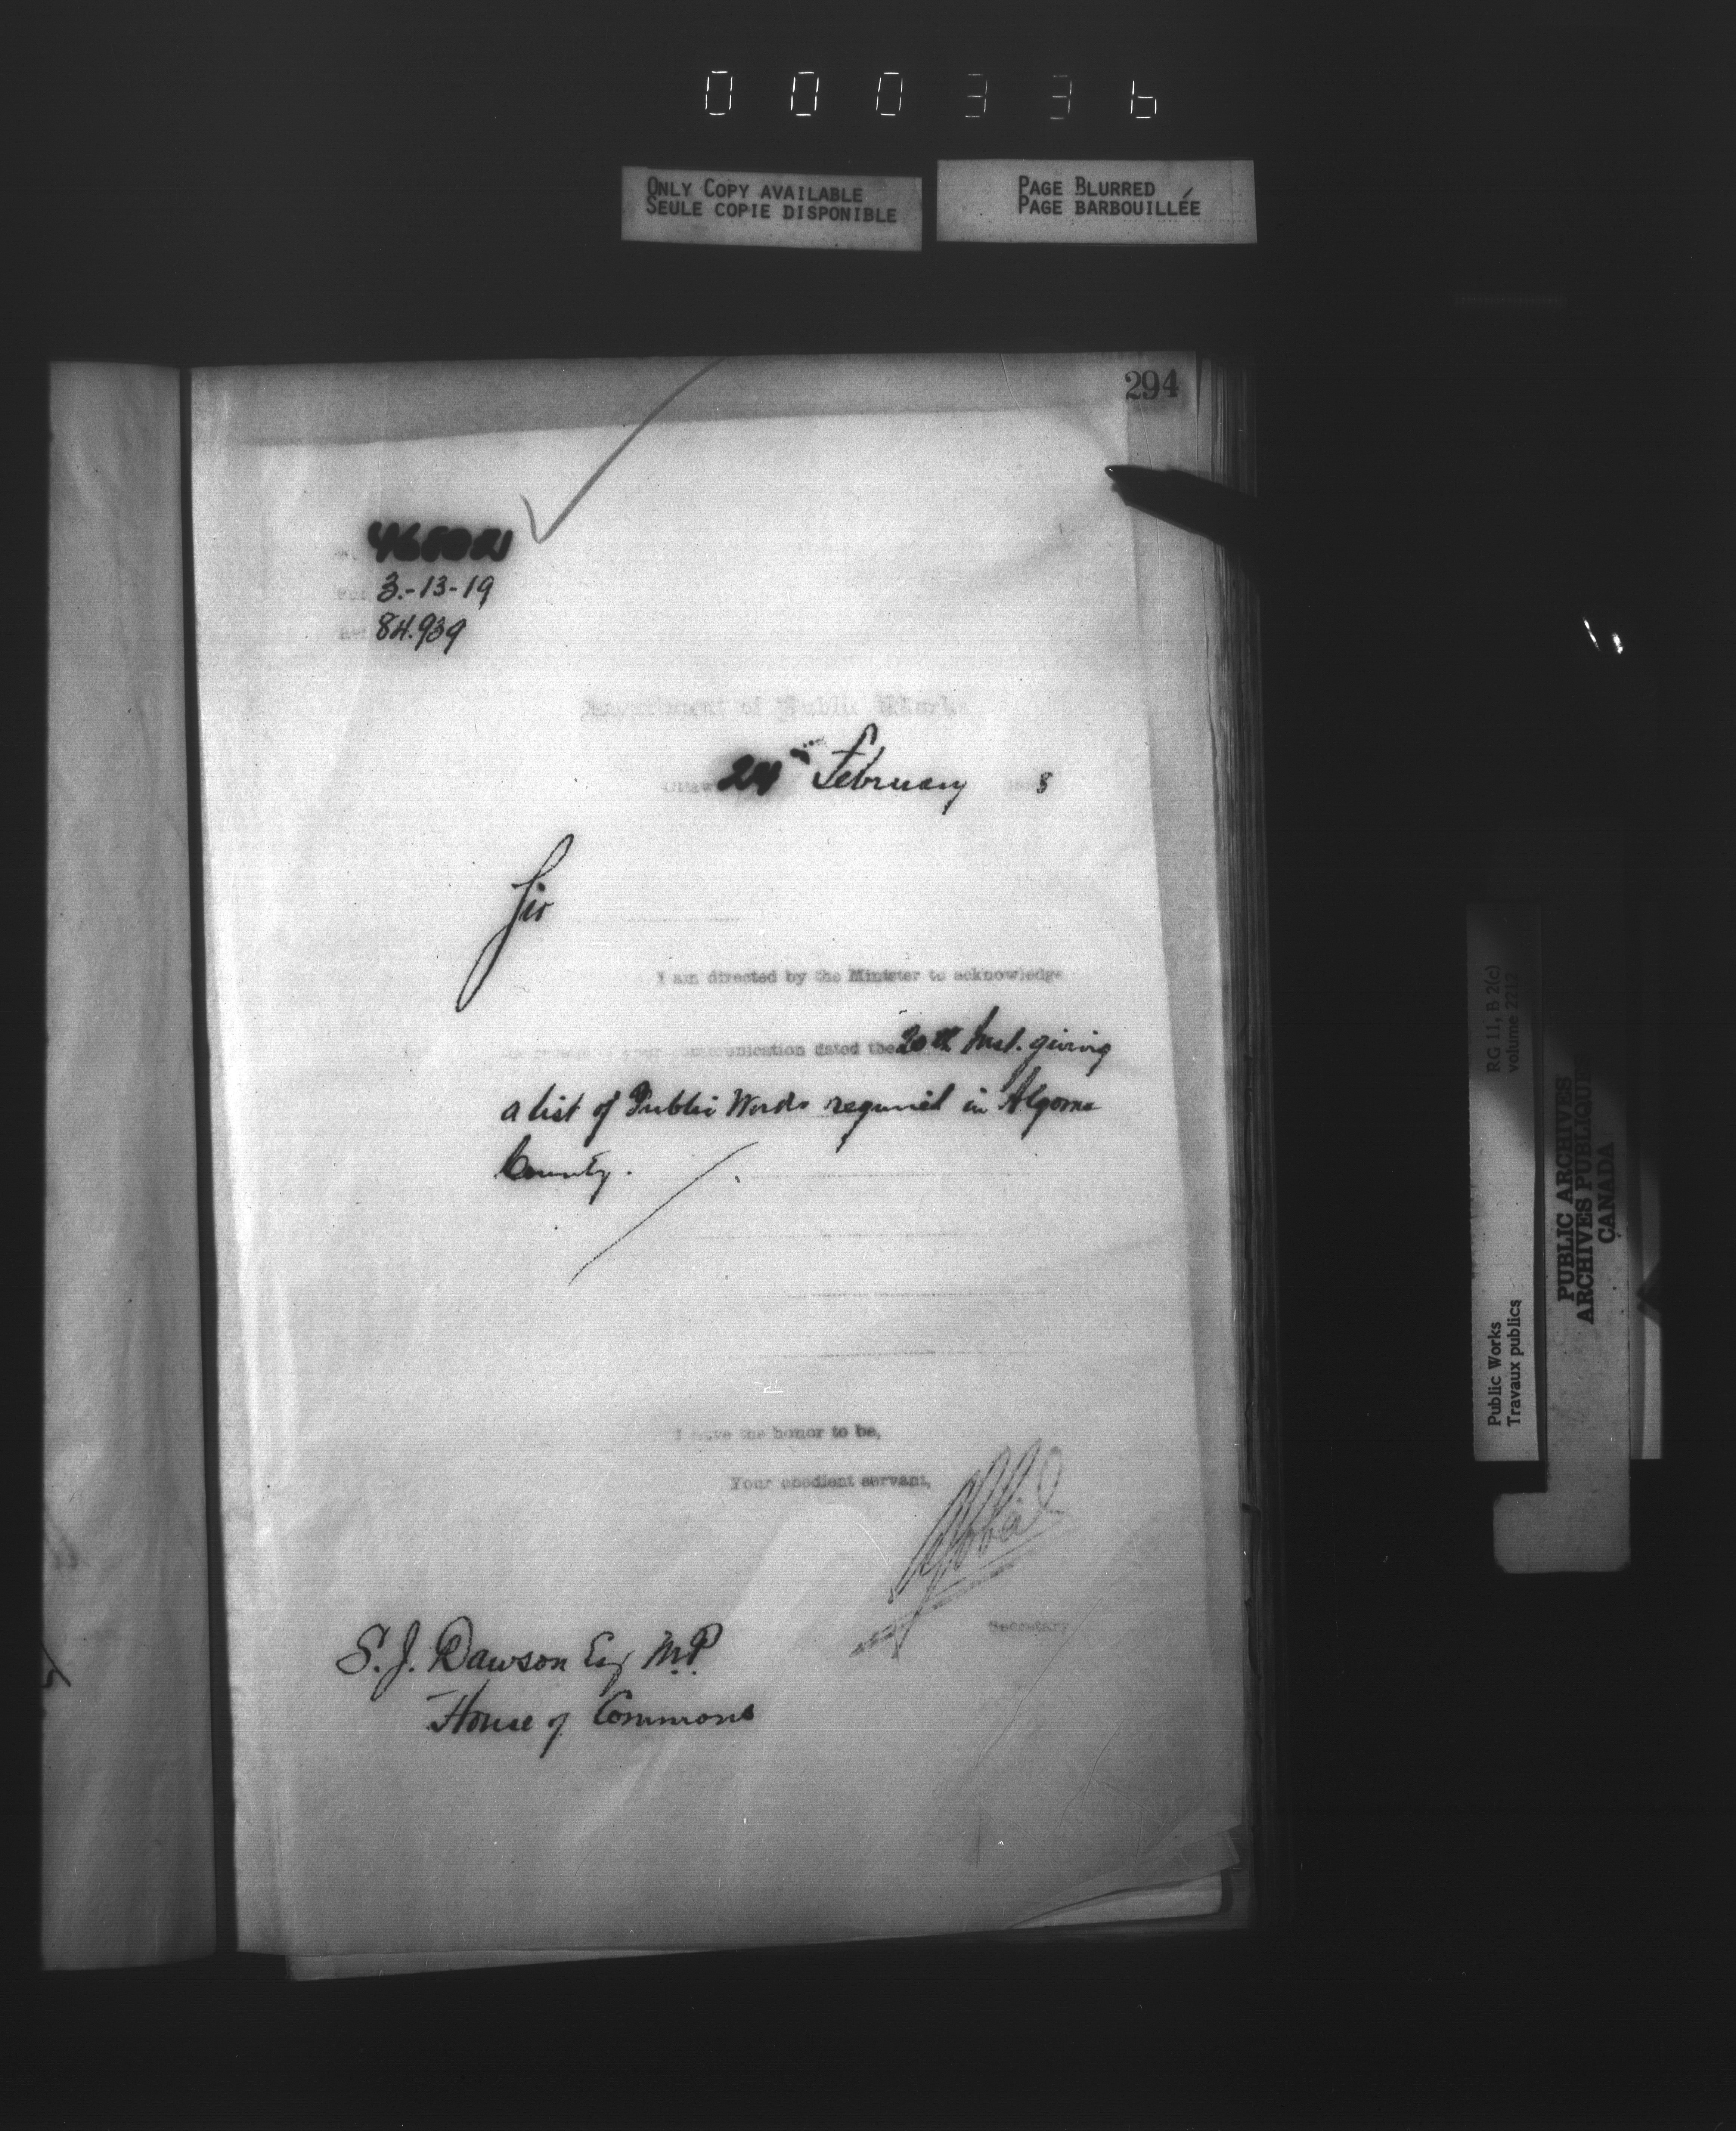 00033b
ONLY COPY AVAILABLE
SEULE COPIE DISPONIBLE
PAGE BLURRED
PAGE BARBOUILLÉE
294
3.-13-19
84.939
Department of Public Works
24th February 8
Sir
I am directed by the Minister to acknowledge
the receipt of your communication dated the 20th Inst. giving
a list of Public Works required in Algoma
County.
I have the honor to be,
Your obedient servant,
Secretary
S. J. Dawson Esq M.P.
House of Commons
RG 11, B 2(c)
volume 2212
Public Works
Travaux publics
PUBLIC ARCHIVES
ARCHIVES PUBLIQUES
CANADA